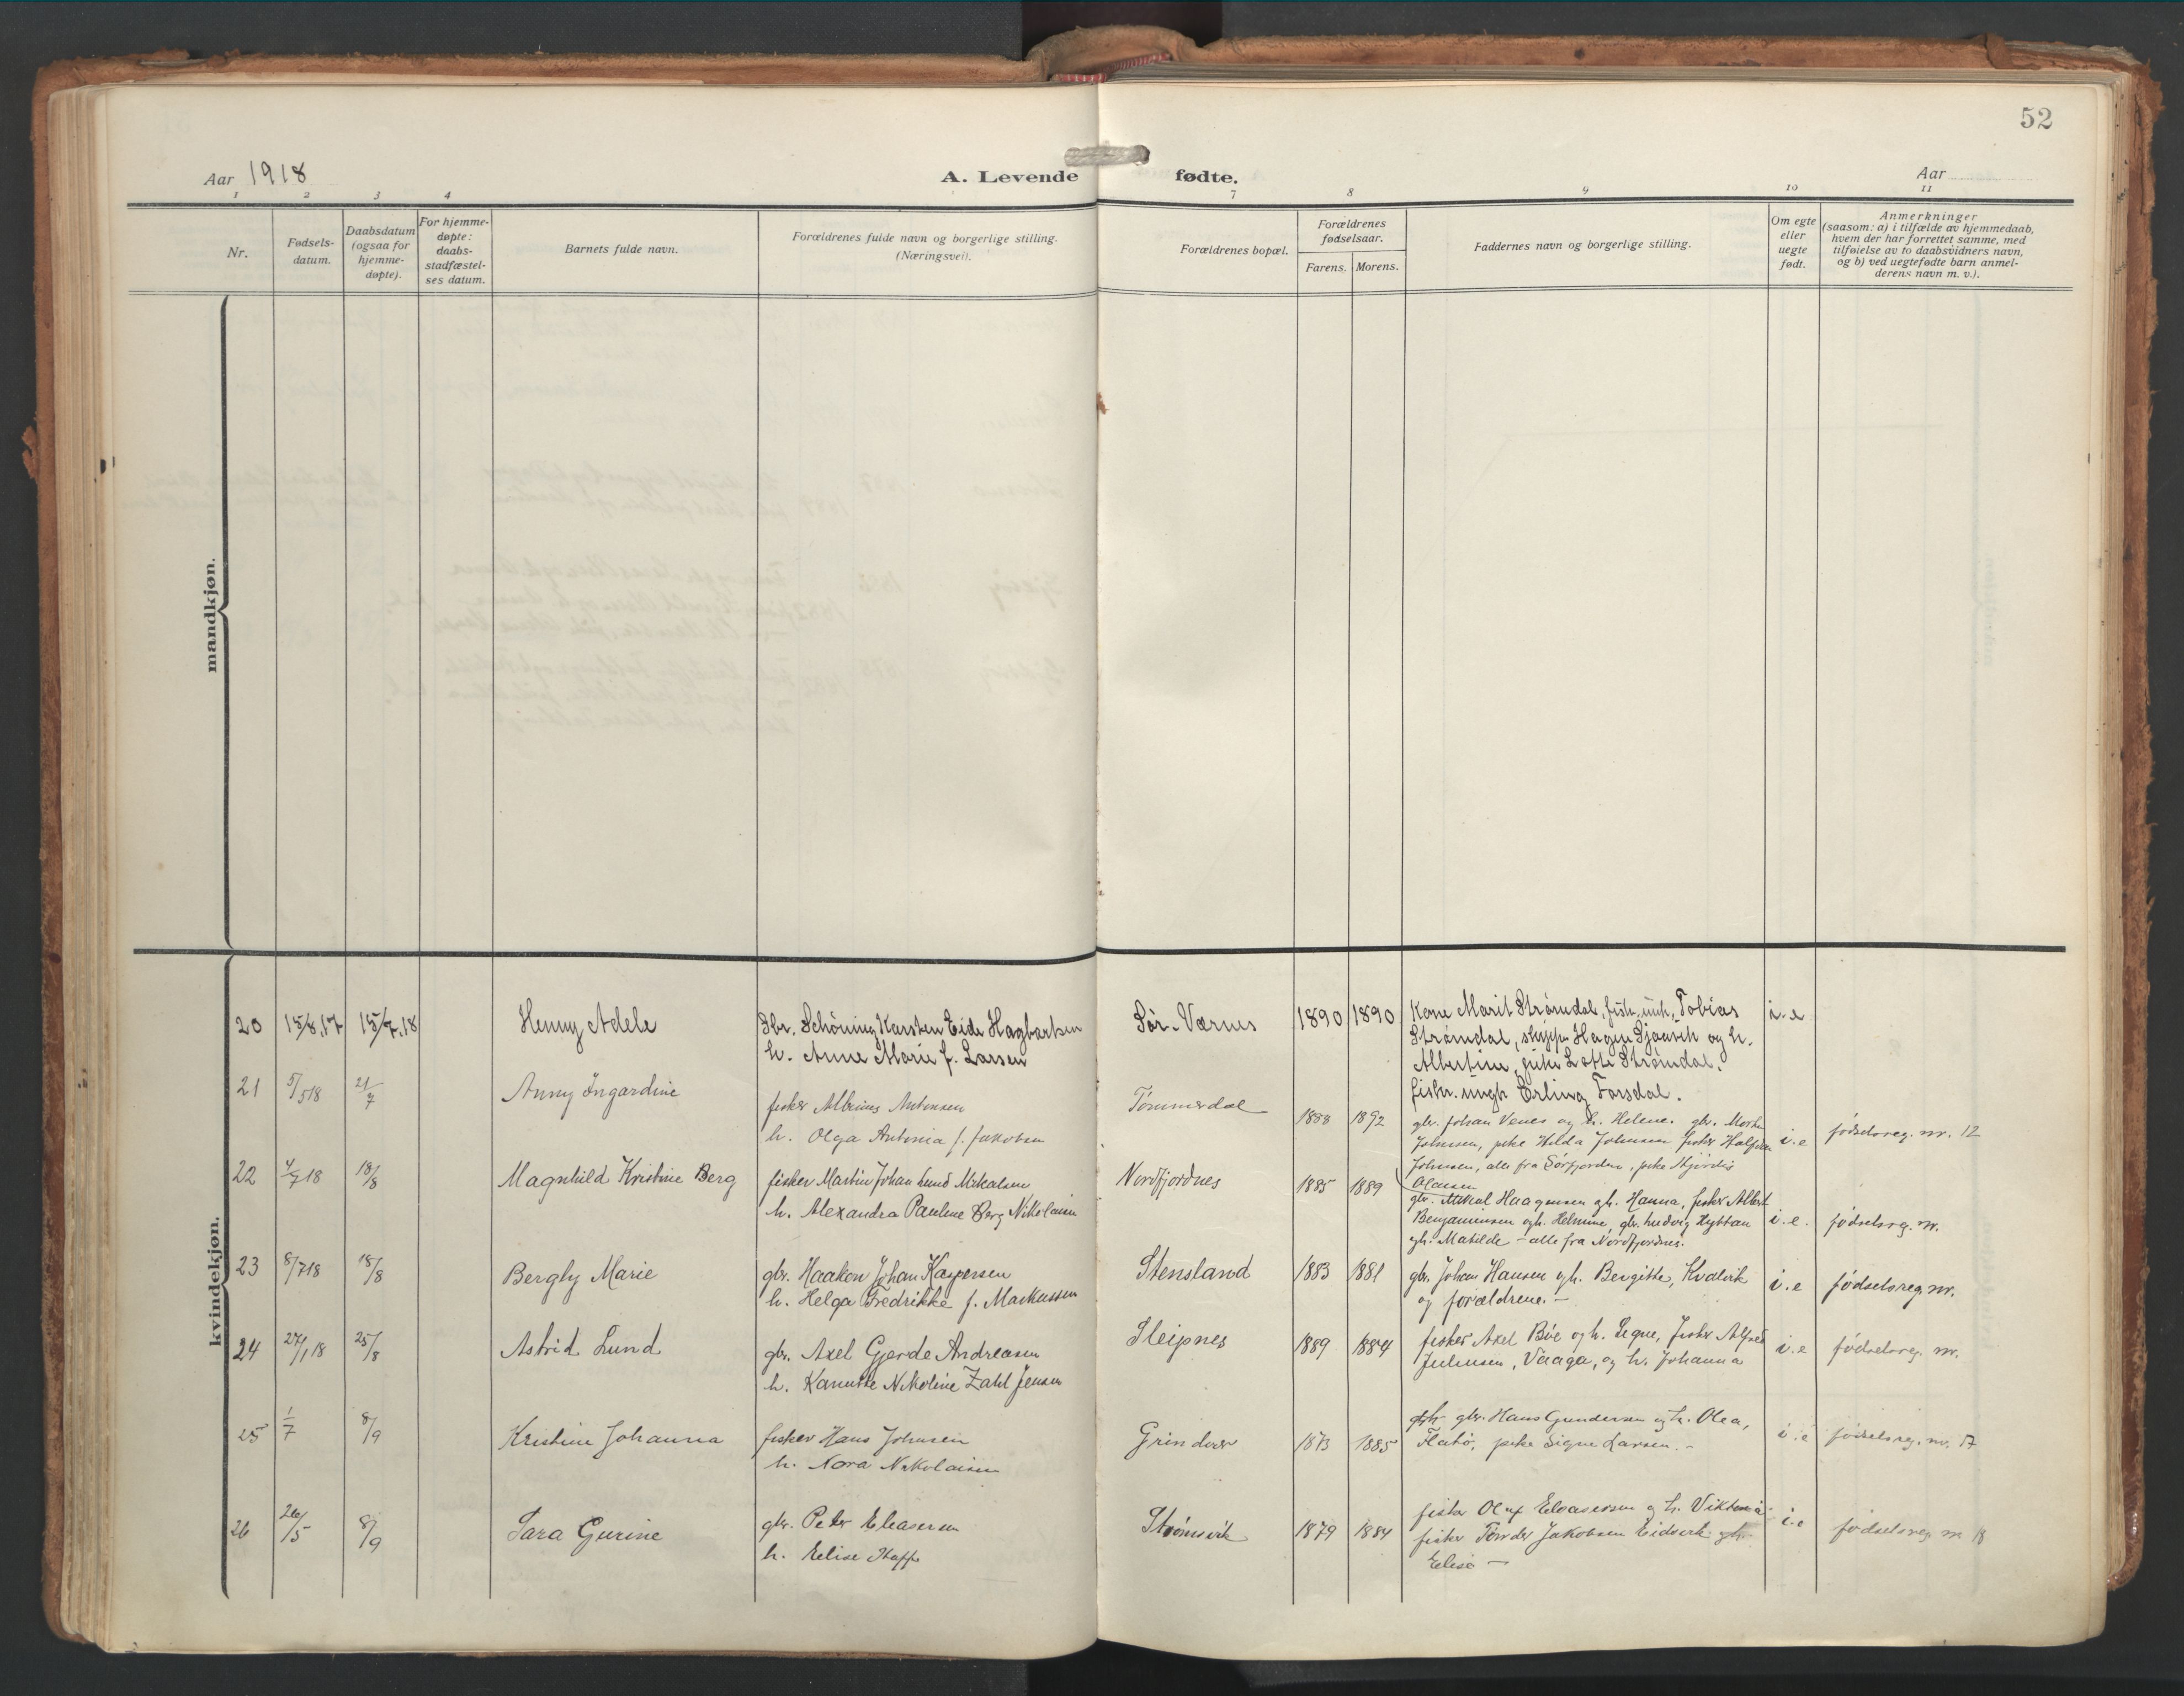 52
Aar 1918
A. Levende fødte.
Aar
1 2 3 4 7 8 9 10 11
Nr.
Fødsels-
datum.
Daabsdatum
(ogsaa for
hjemme-
døpte).
For hjemme-
døpte:
daabs-
stadfæstel-
ses datum.
Barnets fulde navn.
Forældrenes fulde navn og borgerlige stilling.
(Næringsvei).
Forældrenes bopæl.
Forældrenes
fødselsaar.
Farens. Morens.
Faddernes navn og borgerlige stilling.
Om egte
eller
uegte
født.
Anmerkninger
(saasom: a) i tilfælde av hjemmedaab,
hvem der har forrettet samme, med
tilføielse av to daabsvidners navn,
og b) ved uegtefødte barn anmel-
derens navn m. v.).
mandkjøn.
kvindekjøn.
20 15/8.17 15/7.18 Henny Adele
Gbr. Schöning Karsten Eide Hagbartsen
h. Anne Marie f. Larsen
Sør-Værnes 1890 1890
Kone Marit Strømdal, Tobias
Strømdal, Hagen og h.
Albertine, pike Lotte Strømdal,
fisker. ungk. Erling Forsdal.
i.e
21 5/5 18 21/7 Anny Ingardine
fisker Albinus Antonsen
h. Olga Antonia f. Jakobsen
Tømmerdal 1888 1892
gbr. Johan Venes og h. Helene. gbr. Morten
Johnsen, pike Hilda Johnsen fisker Halfdan
Johnsen, alle fra Sørfjorden, pike Hjørdis
Olausen
i.e fødselsreg. nr. 12
22 4/7 18 18/8 Magnhild Kristine Berg
fisker Martin Johan Lund Mikalsen
h. Alexandra Pauline Berg Nikolaisen
Nordfjordnes 1885 1889
gbr. Mikal Haagensen og h. Hanna, fisker Albert
Benjaminsen og h. Helmine, gbr. Ludvig Hybban
og h. Matilde - alle fra Nordfjordnes.
i.e. fødselsreg. nr.
23 8/7 18 18/8 Bergly Marie
gbr. Haakon Johan Kaspersen
h. Helga Fredrikke f. Markussen
Stensland 1883 1881
gbr. Johan Hansen og h. Bergitte, Kvalvik
og forældrene. -
i.e fødselsreg. nr.
24 27/1 18 25/8 Astrid Lund
gbr. Axel Gjerde Andreasen
h. Kanutte Nikoline Zahl Jensen
Sleipnes 1889 1884
fisker Axel Bøe og h. Signe, fisker Alfred
Juliussen, Vaaga, og h. Johanna
i.e fødselsreg. nr.
25 1/7 8/9 Kristine Johanna
fisker Hans Johnsen
h. Nora Nikolaisen
Grindvær 1873 1885
gbr. Hans Gundersen og h. Olea,
Flatø, pike Signe Larsen. -
i.e fødselsreg. nr. 17
26 26/5 8/9 Sara Gurine
gbr. Peter Eleasersen
h. Eelise
Strømsvik 1879 1884
fisker Oluf Eleasersen og h. Viktoria
fisker Tønder Jakobsen Eidsvik og h.
Eelise -
i.e fødselsreg. nr 18